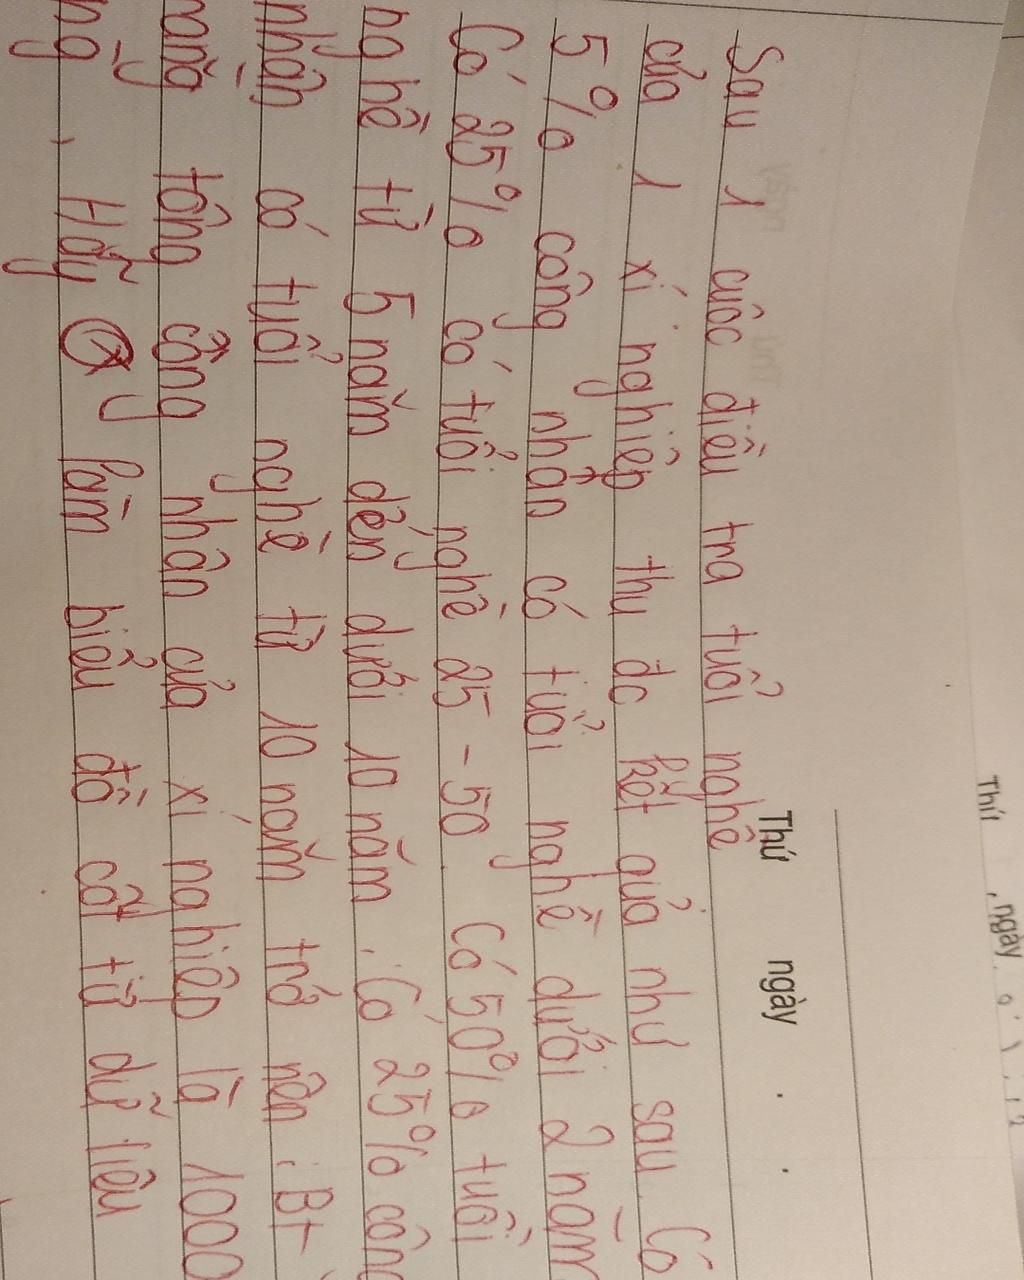 Thứ , ngày
Thứ ngày . .
Sau 1 cuộc điều tra tuổi nghề
của 1 xí nghiệp thu đc kết quả như sau Có
5% công nhân có tuổi nghề dưới 2 năm
Có 25% có tuổi nghề 25 - 50. Có 50% tuổi
nghề từ 5 năm đến dưới 10 năm. Có 25% côn
nhân có tuổi nghề từ 10 năm trở nên. Bt
rằng tổng công nhân của xí nghiệp là 1000
ng, Hãy làm biểu đồ cột từ dữ liệu